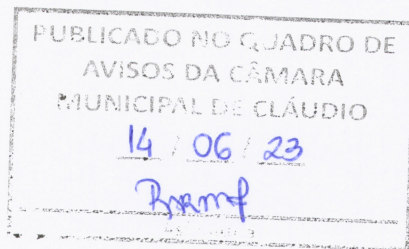 PUBLICADO NO QUADRO DE
AVISOS DA CÂMARA
MUNICIPAL DE CLÁUDIO
14 / 06 / 23